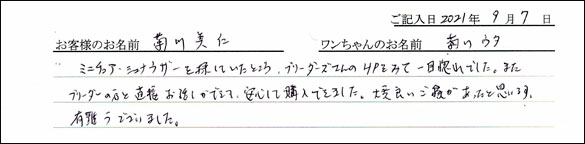 ご記入日 2021年 9月 7日
お客様のお名前 菊川 美仁 ワンちゃんのお名前 菊川 ウタ
ミニチュア・シュナウザーを探していたところ、ブリーダーズさんのHPをみて一目惚れでした。また
ブリーダーの方と直接お話しができて、安心して購入できました。大変良いご縁があったと思います。
有難うございました。